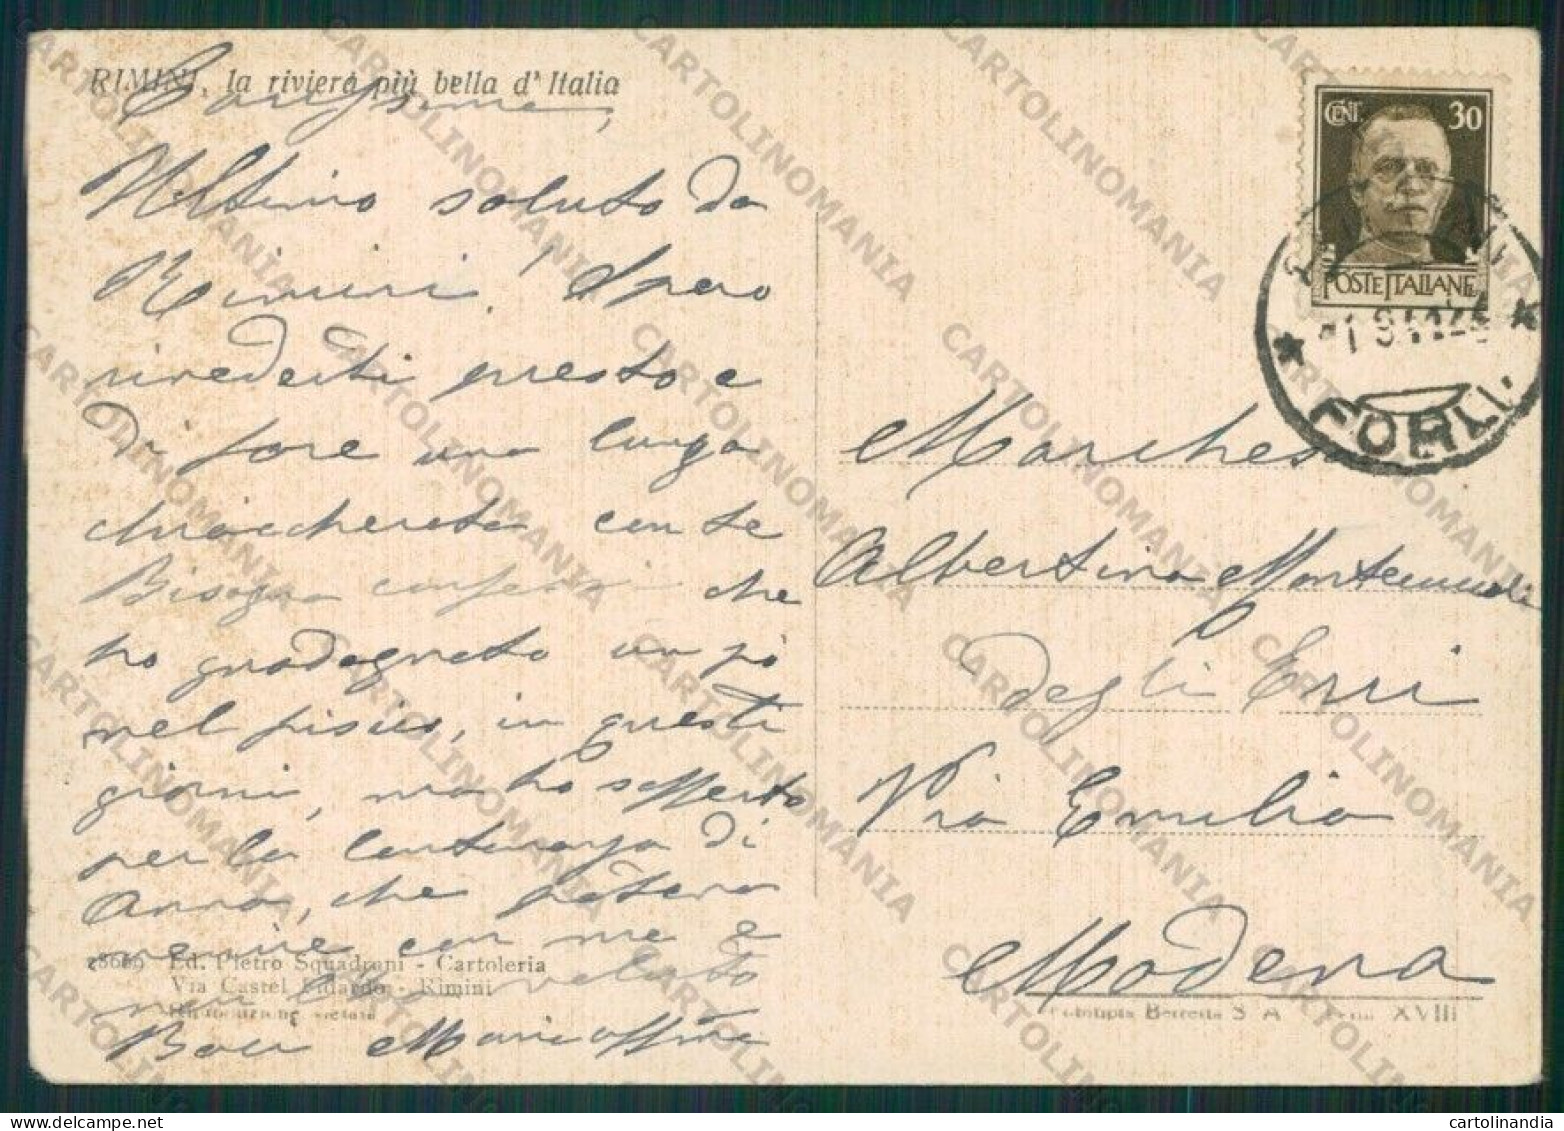 RIMINI, la riviera più bella d'Italia
Carissima,
Ultimo saluto da
Rimini. Spero
rivederti presto e
di fare una lunga
chiaccherata con te
Bisogna che
ho guadagnato un pò
nel fisico, in questi
giorni, ma ho sofferto
per la lontananza di
Anna, che poteva
venire con me e
non ha voluto
Baci
CENT. 30
POSTE ITALIANE
FORLI
Marchesa
Albertina Montecuccoli
degli Erri
Via Emilia
Modena
Ed. Pietro Squadrani - Cartoleria
Via Castel Fidardo - Rimini
Riproduzione vietata
Fototipia Berretta S. A. XVIII
CARTOLINOMANIA
cartolinandia